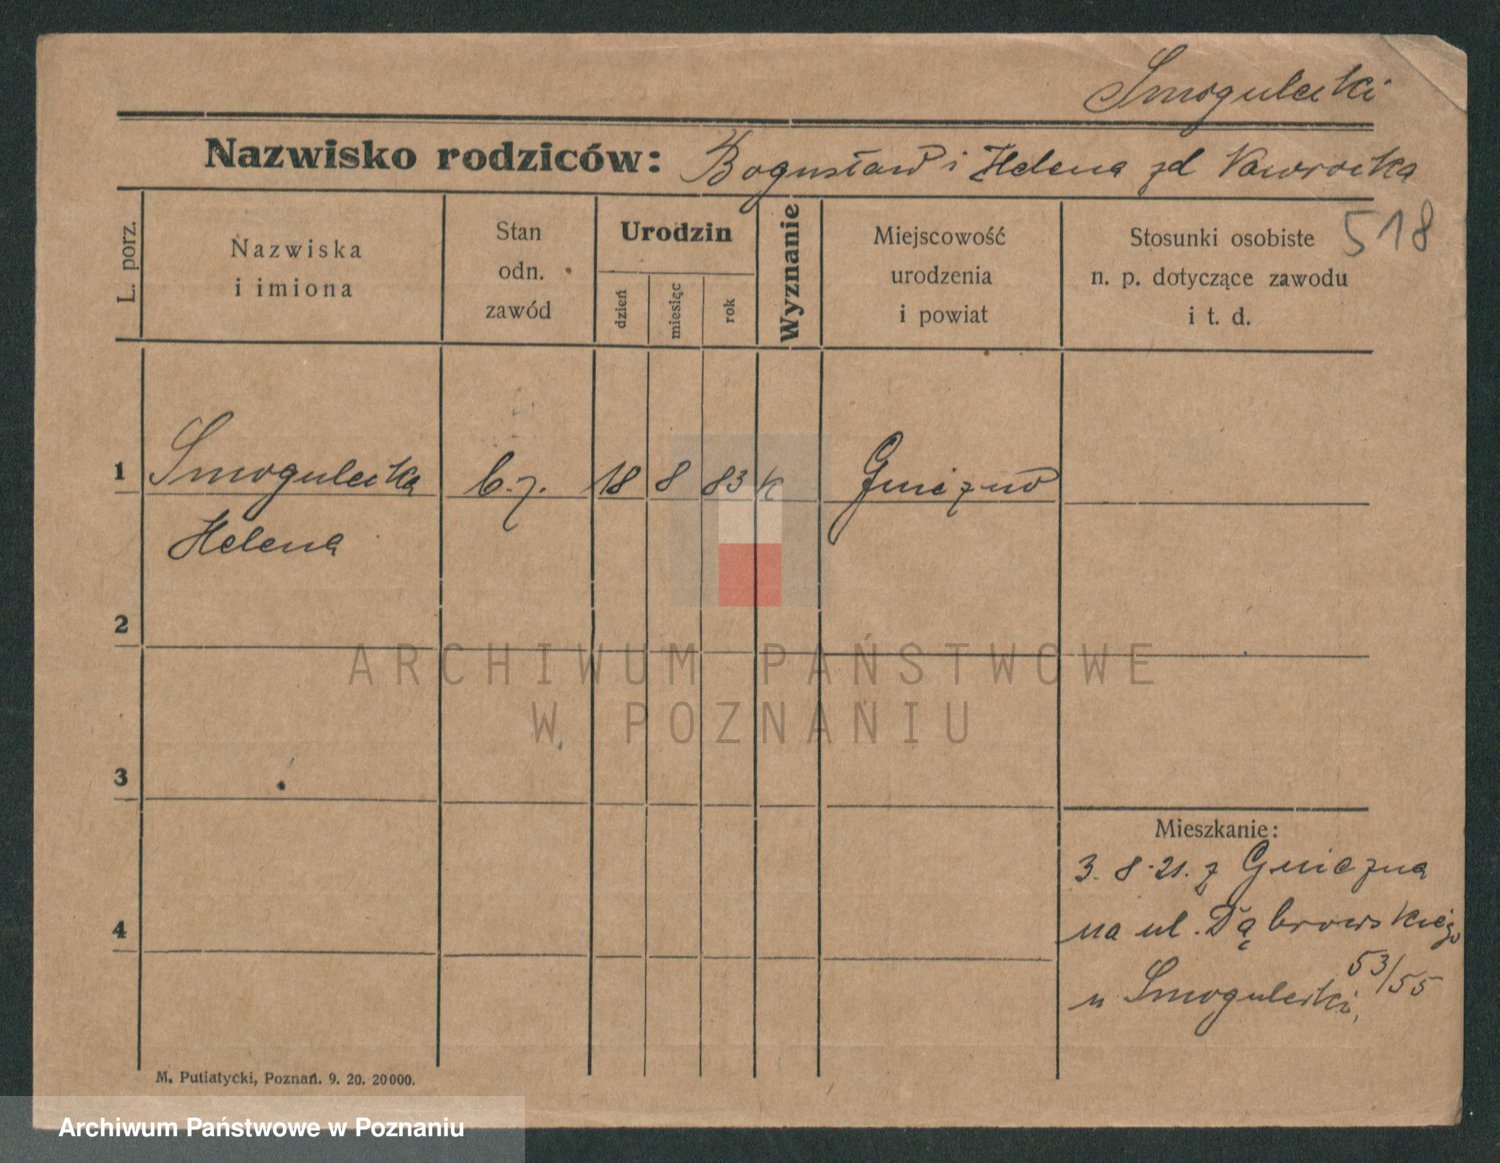 Smogulecki
Nazwisko rodziców: Bogusław i Helena zd Nawrocka
518
L. porz.
Nazwiska
i imiona
Stan
odn.
zawód
Urodzin
dzień
miesiąc
rok
Wyznanie
Miejscowość
urodzenia
i powiat
Stosunki osobiste
n. p. dotyczące zawodu
i t. d.
1 Smogulecka b.z. 18 8 83 k Gniezno
Helena
2
3
4
Mieszkanie:
3.8.21. z Gniezna
na ul. Dąbrowskiego
53/55
u Smogulecki,
M. Putiatycki, Poznań. 9. 20. 20000.
ARCHIWUM PAŃSTWOWE
W POZNANIU
Archiwum Państwowe w Poznaniu